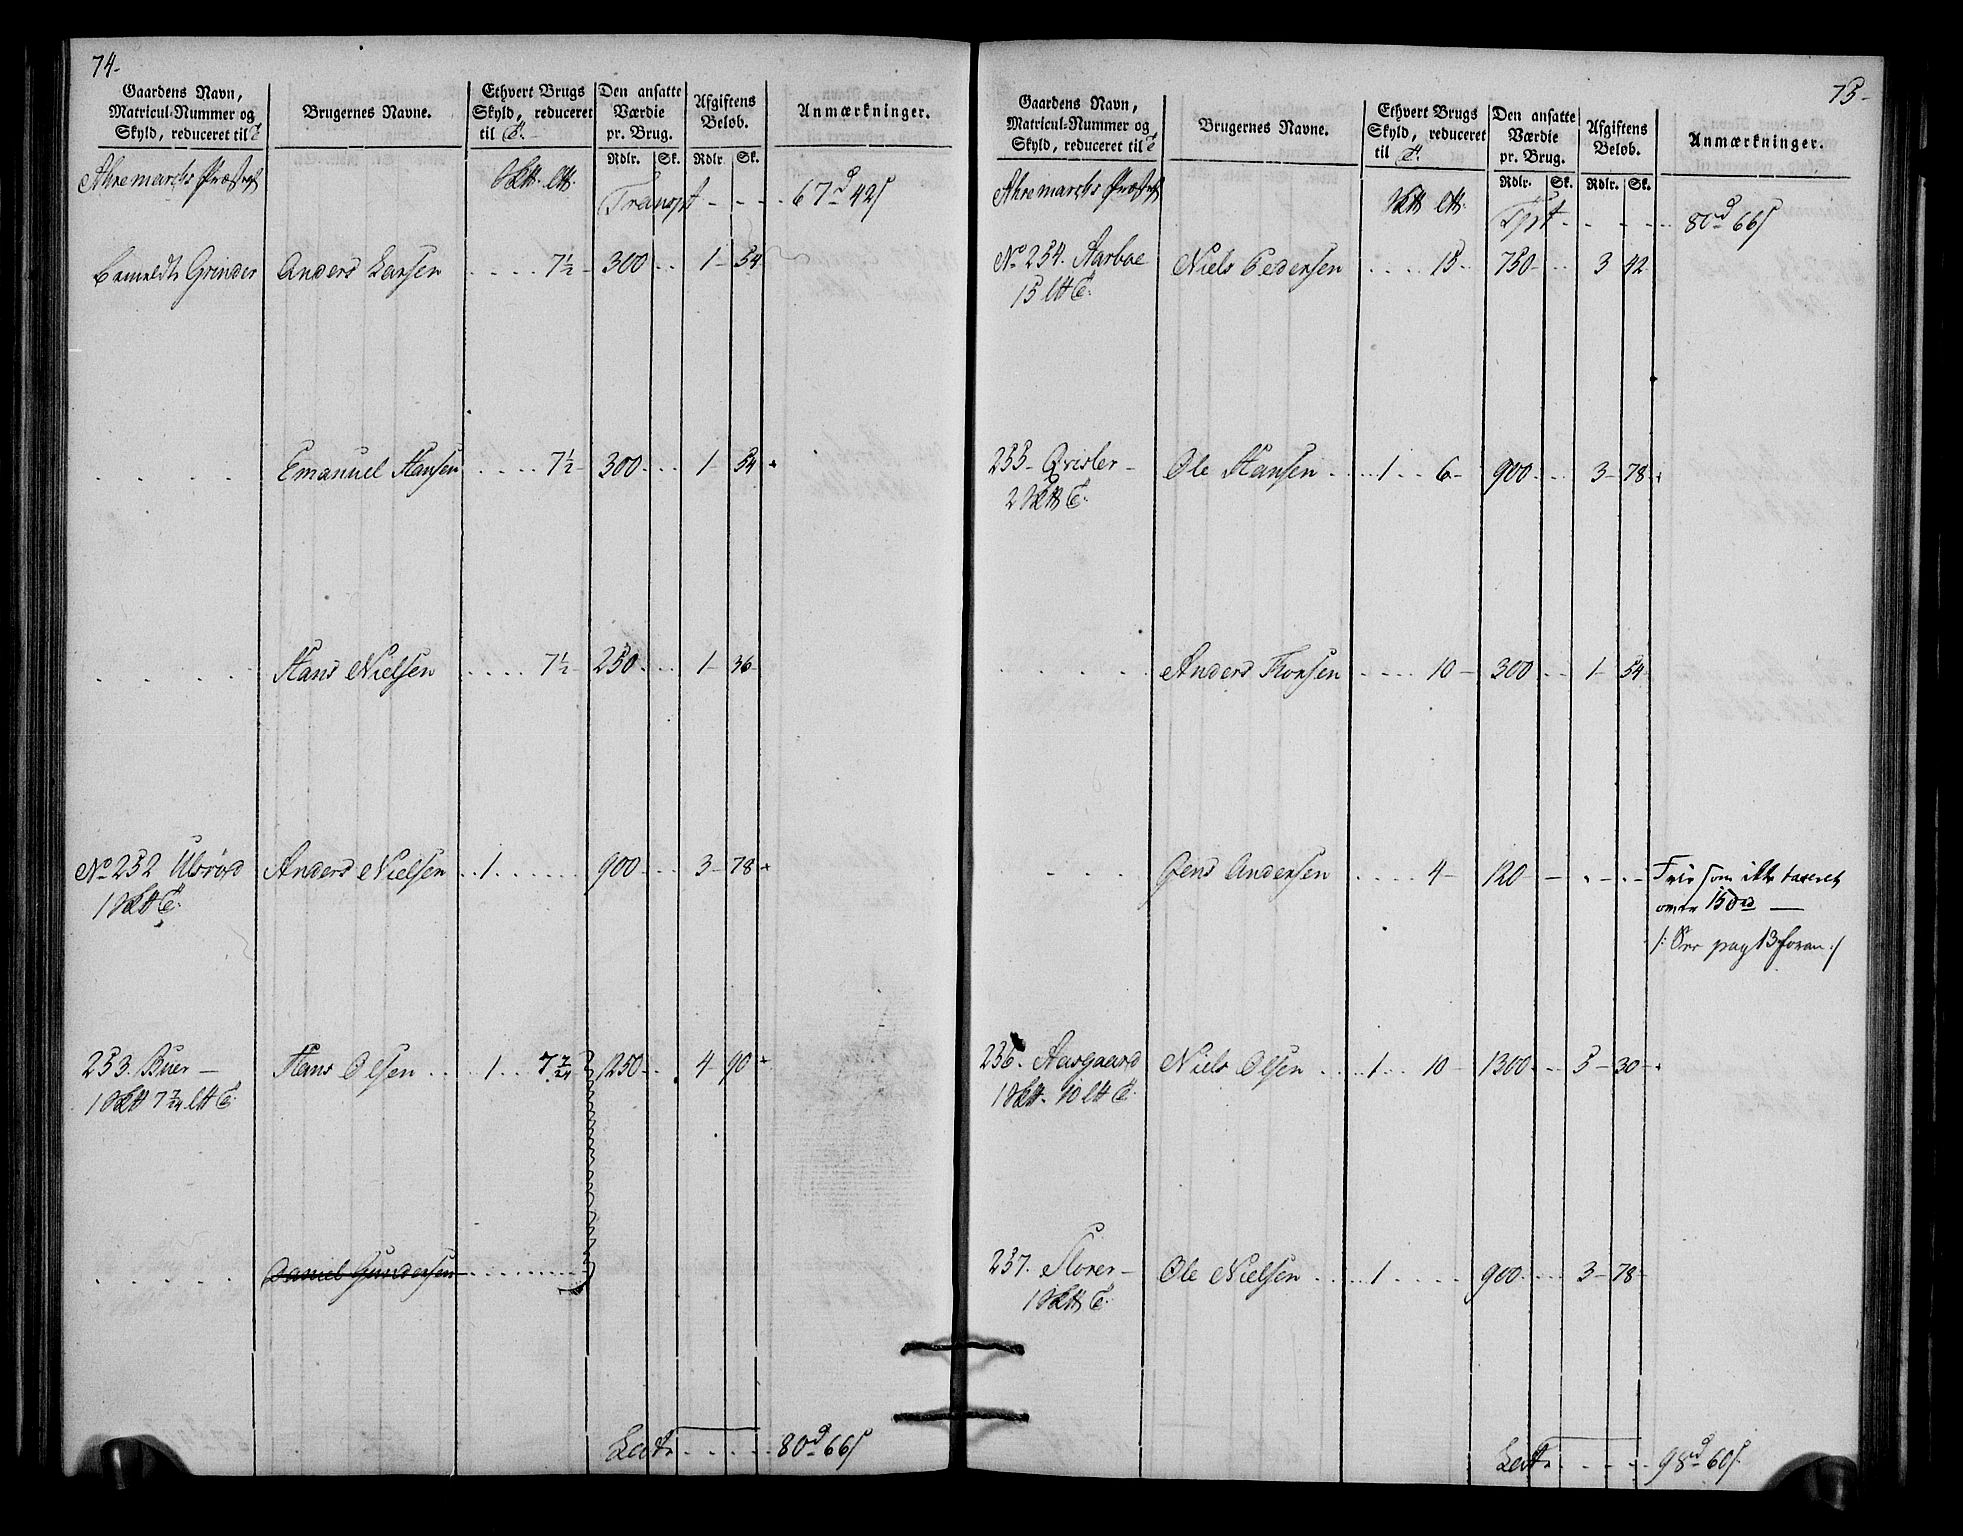 74-
Gaardens Navn, Matricul-Nummer og Skyld, reduceret til
Brugernes Navne.
Ethvert Brugs Skyld, reduceret til
Den ansatte Værdie pr. Brug.
Rdlr. Sk.
Afgiftens Beløb.
Rdlr. Sk.
Anmærkninger.
Transpt - - - - 67 42
Grinder Anders Larsen . . . . 7½ - 300 . . 1 - 54
. . . . Emanuel Hansen . . . . 7½ - 300 . . 1 - 54
. . . . Hans Nielsen . . . . 7½ - 250 . . 1 - 36
No 252 Ulsrød Anders Nielsen . . 1 . . . . . 900 . . 3 - 78
253. Buer - Hans Olsen . . 1 . . 7 1250 . . 4 - 90
. . . . . Daniel Gundersen
Lat. . . . . 80 66
75-
Gaardens Navn, Matricul-Nummer og Skyld, reduceret til
Brugernes Navne.
Ethvert Brugs Skyld, reduceret til
Den ansatte Værdie pr. Brug.
Rdlr. Sk.
Afgiftens Beløb.
Rdlr. Sk.
Anmærkninger.
Tpt - - - - 80 66
No 254. Aarboe Niels Pedersen . . . . 15 - 750 - . . 3 42
15
255 - Ole Hansen . . . 1 . . 6 - 900 . . 3 - 78
2
. . . . Anders Thorsen . . . . 10 - 300 . . 1 - 54
. . . . Jens Andersen . . . . 4 - 120 - - . - . -
Frie som ikke taxeret
over 150 -
/: See pag 13 foran :/
256. Aasgaard Niels Olsen . . . 1 . . 10 - 1300 . . 5 - 30
1 10
257. Storer - Ole Nielsen . . . . 1 . . . . 900 . . 3 - 78
1
Lat. . . . . 98 60